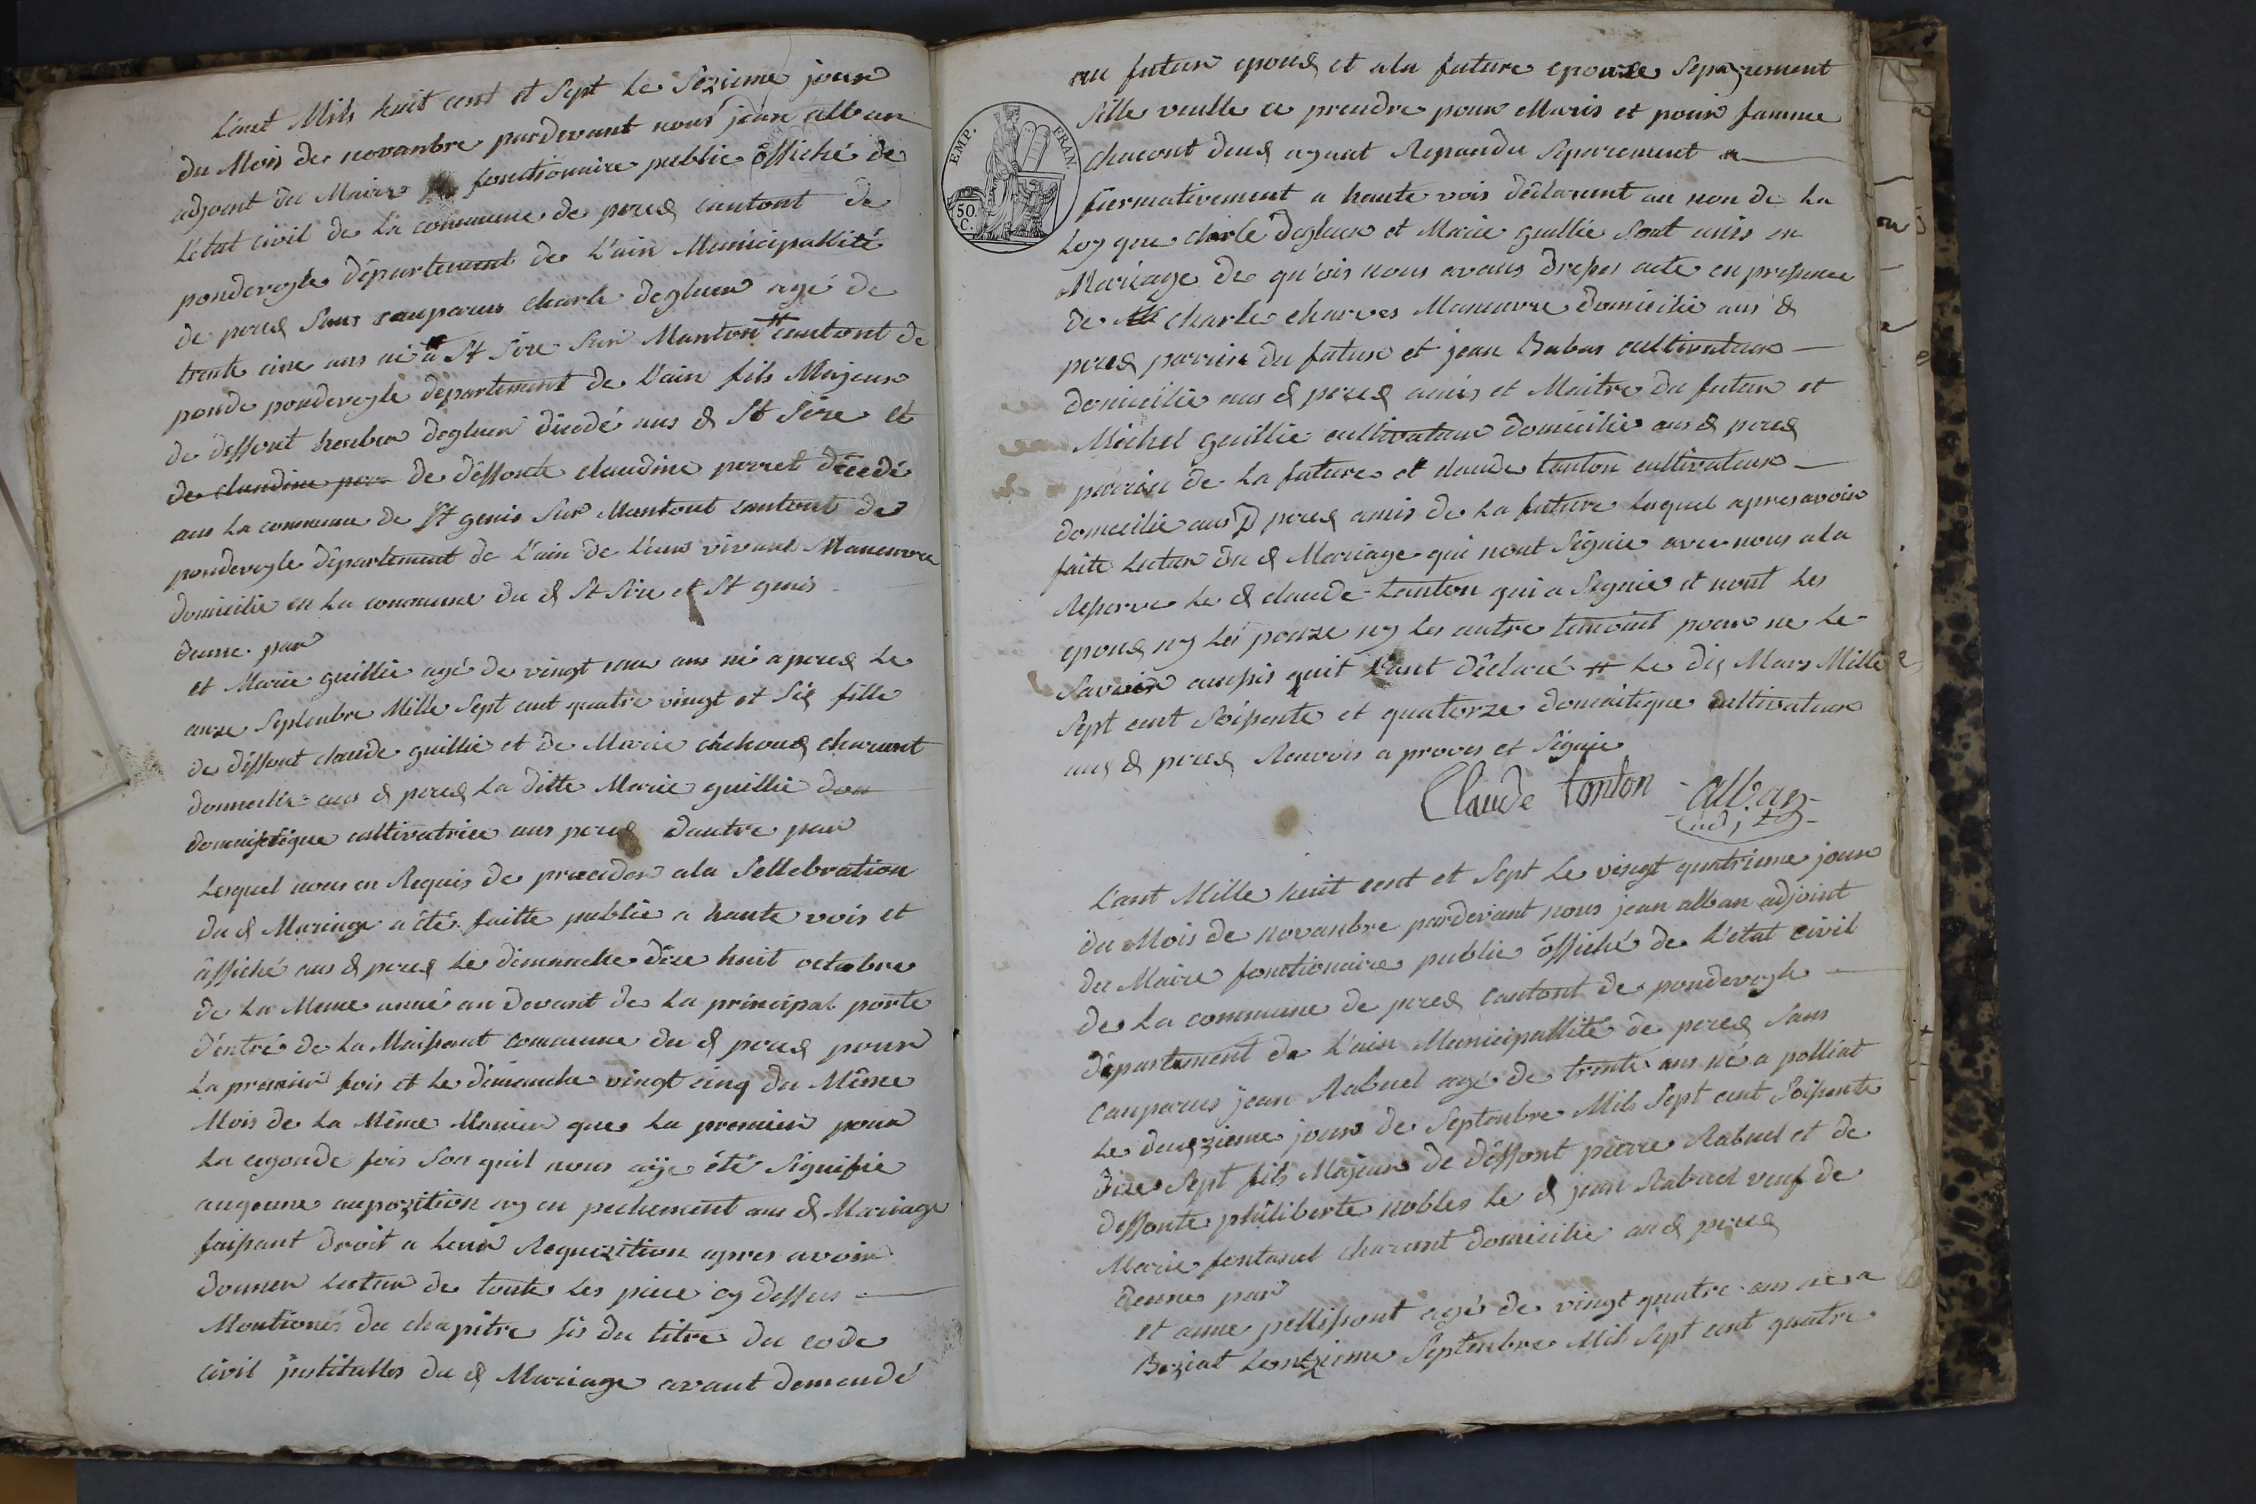 L'ant Mils huit cent et Sept Le Sezieme jour
du Mois de novanbre pardevant nous jean alban
adjoent du Maire fonctionaire public õffiché de
L'état civil de La commune de peres cantont de
pondevegle département de L'ain Municipallité
de peres Sous conparus charle degluen agé de
trente cinc ans né a St Sire Sur Manton # cantont de
ponde pondevegle département de L'ain fils Majeur
de deffont degluen décédé aus d St Sire et
de claudine perr de deffonte claudine perret décedé
aus La commune de St genis Sur Mantont cantont de
pondevegle département de L'ain de Leurs vivant Maneuvre
domicilie en La commune du d St Sire et St genis
dunne par
et Marie guillie agé de vingt eun ans né a peres Le
onze Septenbre Mille Sept cent quatre vingt et Sis fille
de deffont claude guillie et de Marie chacunt
domicilie aus d peres La ditte Marie guillie dom
domaistique cultivatrice aus peres dautre par
Lesquel nous en Requis de proceder ala Sellebration
du d Mariage a été faitte publie a haute vois et
affiché aus d peres Le dimanche dize huit octobre
de La Meme anné au devant de La principal porte
d'entré de La Maisont commune du d peres pour
La premier fois et Le dimanche vingt cinq du Même
Mois de La Même Manier que La premier pour
La cegonde fois Son quil nous aije été Signifie
augeune aupozition ny en pechement aus d Mariage
faisant droit a Leur Requizition apres avoir
donner Lectur de toute Les piece cy dessus
Montionés du chapitre sis du titre du code
civil jnstitulles du d Mariage avant demendé
au futur epous et ala future epouze Separement
Sille veulle ce prendre pour Maris et pour famme
chacont deus ayant Repondu Separement a
firmativement a haute vois déclarent au non de La
Loy que charle degluen et Marie guillie Sont unis en
Mariage de qu'ois nous avons dresser acte en presence
de charle charves Maneuvre domicilie aus d
peres parrin du futur et jean Babas cultivateur
domicilie aus d peres amis et Maitre du futur et
Michel guillie cultivateur domicilie aus d peres
parrin de La future et claude tonton cultivateur
domicilie aus d peres amis de La future Lequel apres avoir
faite Lectur du d Mariage qui nont Signie avec nous ala
Reserve Le d claude tonton qui a Signie et nont Les
epous ny Lés pouze ny Les autre temoint pour ne Le
Savoir ausis quit L'ont déclaré # Le dis Mars Mille
Sept cent Soisente et quatorze domaitique cultivateur
aus d peres Renvois a prover et Signie
Claude tonton alban
adjt
L'ant Mille huit cent et Sept Le vingt quatrieme jour
du Mois de novanbre pardevant nous jean alban adjoint
du Maire fonctionaire public õffiché de L'état civil
de La commune de peres cantont de pondevegle
département de L'ain Municipallité de peres Sans
conparus jean Rabuel agé de trente ans né a polliat
Le deuszieme jour de Septenbre Mils Sept cent Soisente
dixe Sept fils Majeur de deffont pierre Rabuel et de
deffonte philiberte nobles Le d jean Rabuel veuf de
Marie fontanel chacunt domicilie au d peres
deune par
et anne pellissont agé de vingt quatre ans né a
Beziat Leontzieme Septenbre Mils Sept cent quatre
EMP. FRAN.
50.
C.